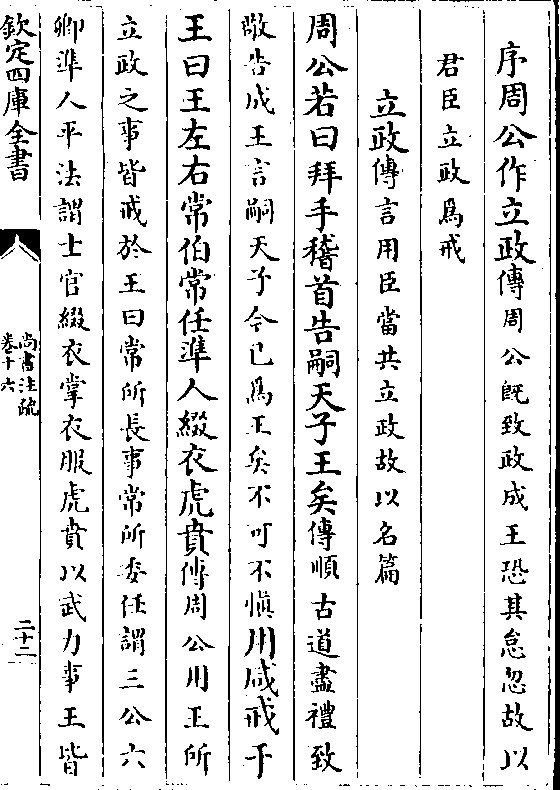 序周公作立政傳周公既致政成王恐其怠忽故以
君臣立政爲戒
立政傳言用臣當共立政故以名篇
周公若曰拜手稽首告嗣天子王矣傳順古道盡禮致
敬告成王言嗣天子今已爲王矣不可不慎用咸戒于
王曰王左右常伯常任準人綴衣虎賁傳周公用王所
立政之事皆戒於王曰常所長事常所委任謂三公六
卿準人平法謂士官綴衣掌衣服虎賁以武力事王皆
欽定四庫全書
尚書注疏
卷十六
二十二